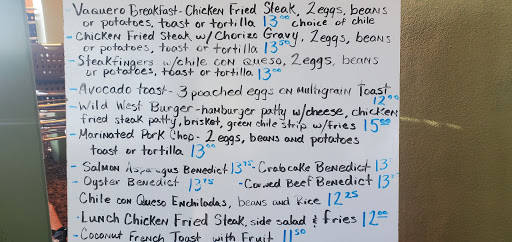 - Vaquero Breakfast - Chicken Fried Steak, 2 eggs, beans
or potatoes, toast or tortilla 13⁰⁰ choice of chile
- Chicken Fried Steak w/ Chorizo Gravy, 2 eggs, beans
or potatoes, toast or tortilla 13⁵⁰
- Steakfingers w/chile con queso, 2 eggs, beans
or potatoes, toast or tortilla 13⁰⁰
- Avocado toast - 3 poached eggs on Multigrain Toast
12⁰⁰
- Wild West Burger - hamburger patty w/cheese, chicken
fried steak patty, brisket, green chile strip w/fries 15⁰⁰
- Marinated Pork Chop - 2 eggs, beans and potatoes
toast or tortilla 13⁰⁰
- Salmon Asparagus Benedict 13⁷⁵ - Crabcake Benedict 13
- Oyster Benedict 13⁷⁵ - Corned Beef Benedict 13
Chile con Queso Enchiladas, beans and Rice 12²⁵
- Lunch Chicken Fried Steak, side salad & fries 12⁰⁰
- Coconut French Toast with Fruit 11⁵⁰